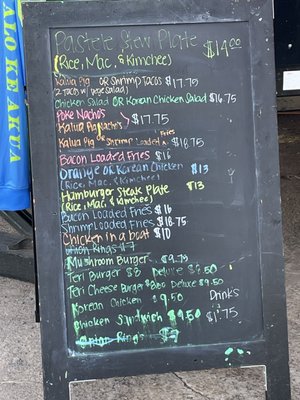 ALO KE AKUA
Pastele Stew Plate $14.00
(Rice, Mac, & Kimchee)
Kalua Pig OR Shrimp Tacos $17.75
(2 Tacos w/ vege salad)
Chicken Salad OR Korean Chicken Salad $16.75
Poke Nachos
Kalua Pig Nachos $17.75
Kalua Pig OR Shrimp Loaded Fries $18.75
Bacon Loaded Fries $16
Orange OR Korean Chicken $13
(Rice, Mac, & Kimchee)
Hamburger Steak Plate $13
(Rice, Mac, & Kimchee)
Bacon Loaded Fries $16
Shrimp Loaded Fries $18.75
Chicken in a boat $10
Onion Rings $7
Mushroom Burger $9.75
Teri Burger $8 Deluxe $9.50
Teri Cheese Burger Deluxe $9.50
Korean Chicken $9.50
Drinks
Chicken Sandwich $9.50 $1.75
Onion Rings